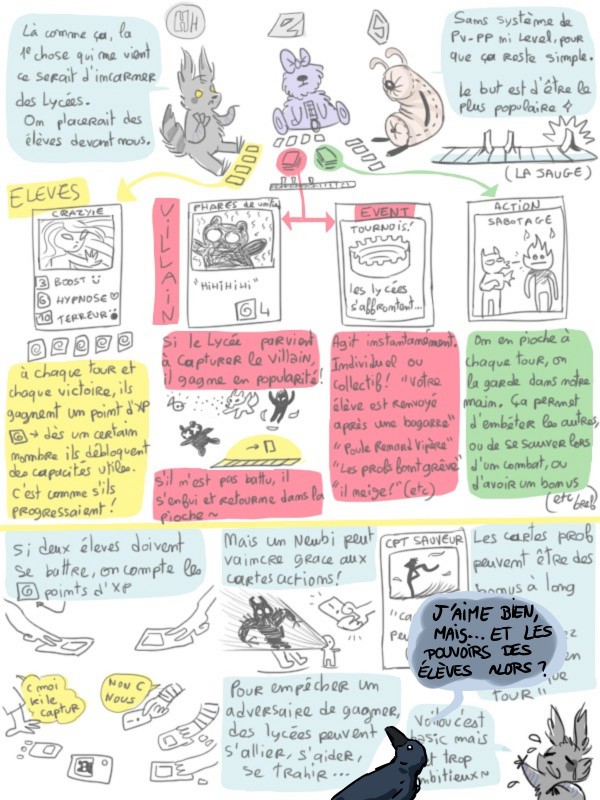 Là comme ça, la
1e chose qui me vient
ce serait d'incarner
des Lycées.
On placerait des
élèves devant nous.
Sans système de
PV-PP ni Level, pour
que ça reste simple.
Le but est d'être le
plus populaire
(LA JAUGE)
ELEVES
CRAZYIE
3 BOOST
6 HYPNOSE
10 TERREUR
à chaque tour et
chaque victoire, ils
gagnent un point d'XP
→ dès un certain
nombre ils débloquent
des capacités utiles.
C'est comme s'ils
progressaient !
VILLAIN
PHARES de voiture
"HiHiHiHi"
4
Si le Lycée parvient
à capturer le Villain,
il gagne en popularité!
s'il n'est pas battu, il
s'enfuit et retourne dans la
pioche ~
EVENT
TOURNOIS!
les lycées
s'affrontent...
Agit instantanément.
Individuel ou
collectif! "Votre
élève est renvoyé
après une bagarre"
"Poule Renard Vipère"
"Les profs font grève"
"il neige!" (etc)
ACTION
SABOTAGE
On en pioche à
chaque tour, on
la garde dans notre
main. Ça permet
d'embêter les autres,
ou de se sauver lors
d'un combat, ou
d'avoir un bonus
(etc bref)
Si deux élèves doivent
se battre, on compte les
points d'XP
Mais un Newbi peut
vaincre grace aux
cartes actions!
CPT SAUVEUR
Les cartes prof
peuvent être des
bonus à long
TOUR"
J'AIME BIEN,
MAIS... ET LES
POUVOIRS DES
ÉLÈVES ALORS ?
C moi
ki le
captur
NON C
NOUS
Pour empêcher un
adversaire de gagner,
des lycées peuvent
s'allier, s'aider,
se trahir...
Voilou c'est
basic mais
trop
ambitieux~